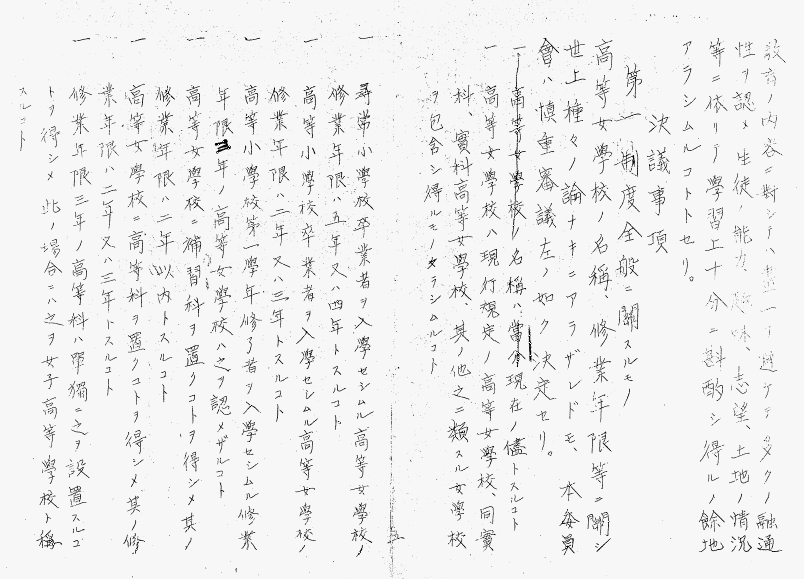 教育ノ内容ニ対シテハ画一ヲ避ケテ多クノ融通
性ヲ認メ生徒ノ能力、趣味、志望、土地ノ情況
等ニ依リテ學習上十分ニ斟酌シ得ルノ餘地
アラシムルコトトセリ。
決議事項
第一 制度全般ニ關スルモノ
高等女學校ノ名稱、修業年限等ニ關シ
世上種々ノ論ナキニアラザレドモ、本委員
會ハ慎重審議左ノ如ク決定セリ。
一 高等女學校ノ名稱ハ當分現在ノ儘トスルコト
一 高等女學校ハ現行規定ノ高等女學校、同實
科、實科高等女學校、其ノ他之ニ類スル女學校
ヲ包含シ得ルモノタラシムルコト
一 尋常小學校卒業者ヲ入學セシムル高等女學校ノ
修業年限ハ五年又ハ四年トスルコト
一 高等小學校卒業者ヲ入學セシムル高等女學校ノ
修業年限ハ二年又ハ三年トスルコト
一 高等小學校第一學年修了者ヲ入學セシムル修業
年限三年ノ高等女學校ハ之ヲ認メザルコト
一 高等女學校ニ補習科ヲ置クコトヲ得シメ其ノ
修業年限ハ二年以内トスルコト
一 高等女學校ニ高等科ヲ置クコトヲ得シメ其ノ修
業年限ハ二年又ハ三年トスルコト
一 修業年限三年ノ高等科ハ單獨ニ之ヲ設置スルコ
トヲ得シメ此ノ場合ニハ之ヲ女子高等學校ト稱
スルコト